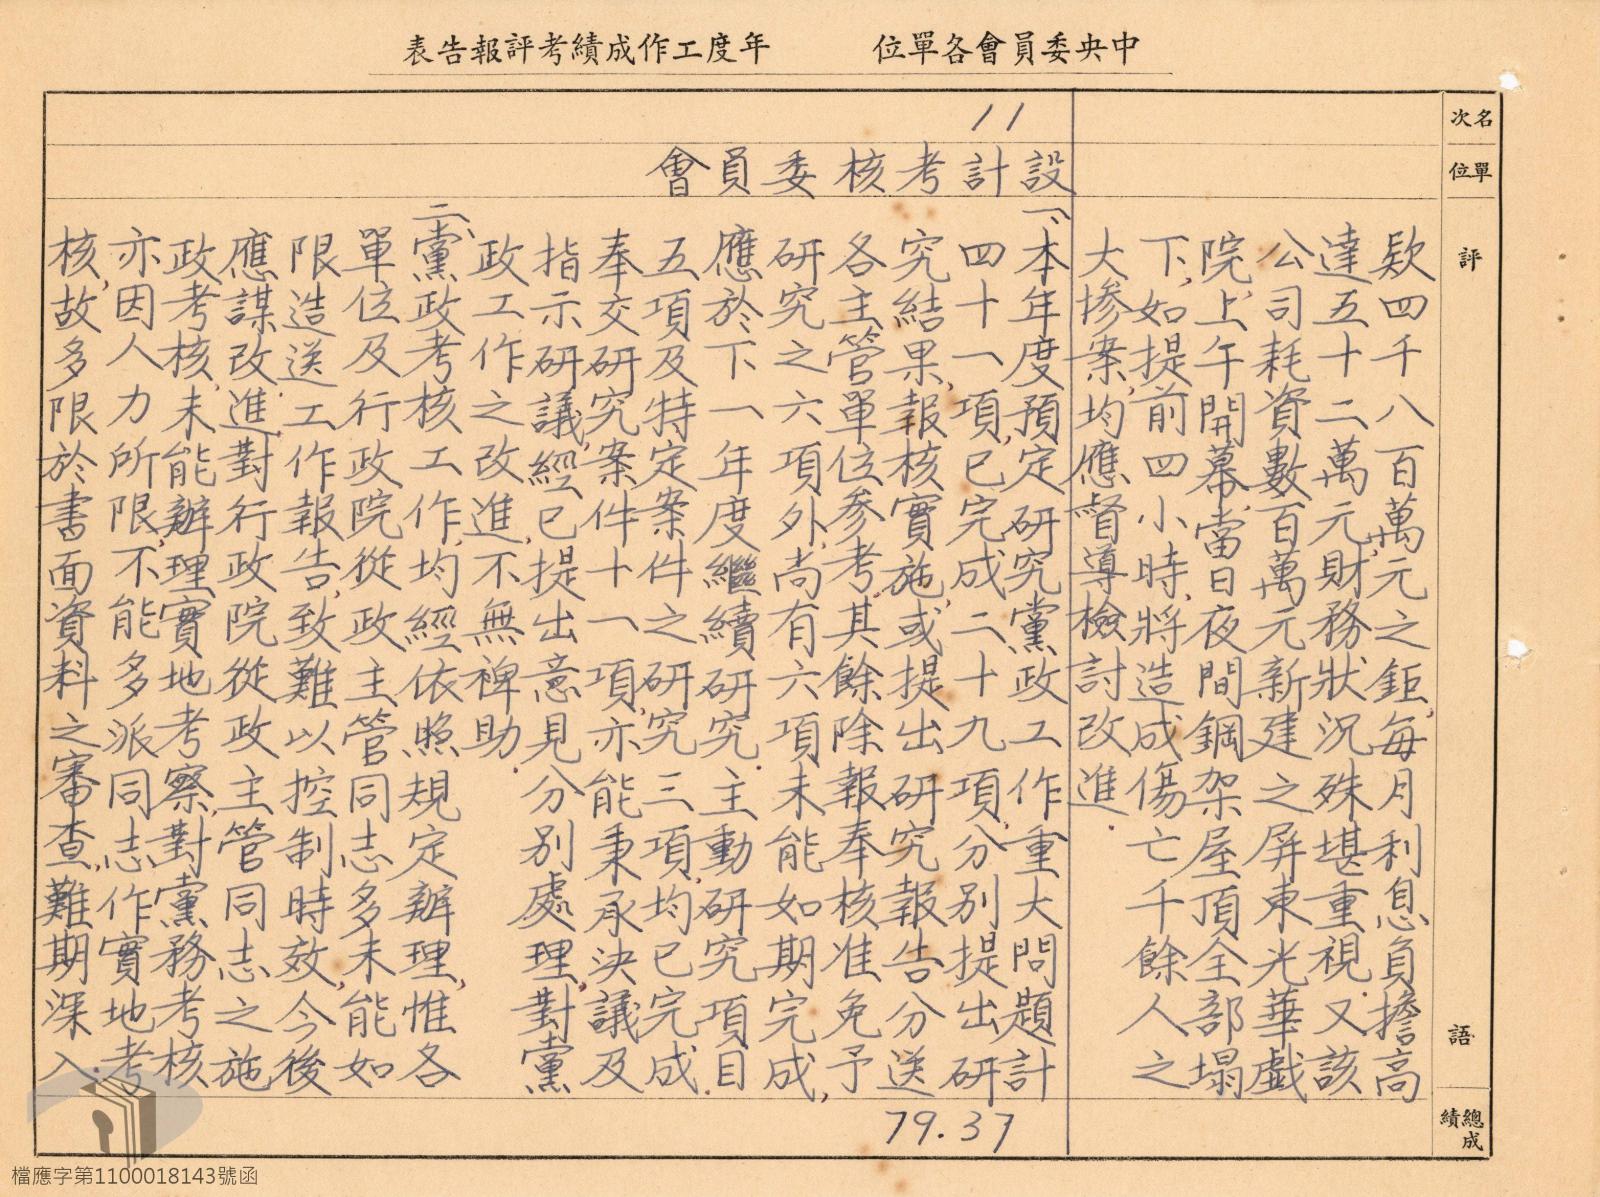 中央委員會各單位　　年度工作成績考評報告表
名次
單位
評語
總成績
欵四千八百萬元之鉅，每月利息負擔高
達五十二萬元，財務狀況殊堪重視。又該
公司耗資數百萬元新建之屏東光華戲
院，上午開幕，當日夜間鋼架屋頂全部塌
下，如提前四小時，將造成傷亡千餘人之
大慘案，均應督導檢討改進。
11
設計考核委員會
一、本年度預定研究黨政工作重大問題計
四十一項，已完成二十九項，分別提出研
究結果，報核實施，或提出研究報告分送
各主管單位參考，其餘除報奉核准免予
研究之六項外，尚有六項未能如期完成，
應於下一年度繼續研究。主動研究項目
五項及特定案件之研究三項，均已完成。
奉交研究案件十一項，亦能秉承決議及
指示研議，經已提出意見分別處理，對黨
政工作之改進，不無裨助。
二、黨政考核工作，均經依照規定辦理，惟各
單位及行政院從政主管同志多未能如
限造送工作報告，致難以控制時效，今後
應謀改進。對行政院從政主管同志之施
政考核，未能辦理實地考察，對黨務考核
亦因人力所限，不能多派同志作實地考
核，故多限於書面資料之審查，難期深入。
79.37
檔應字第1100018143號函